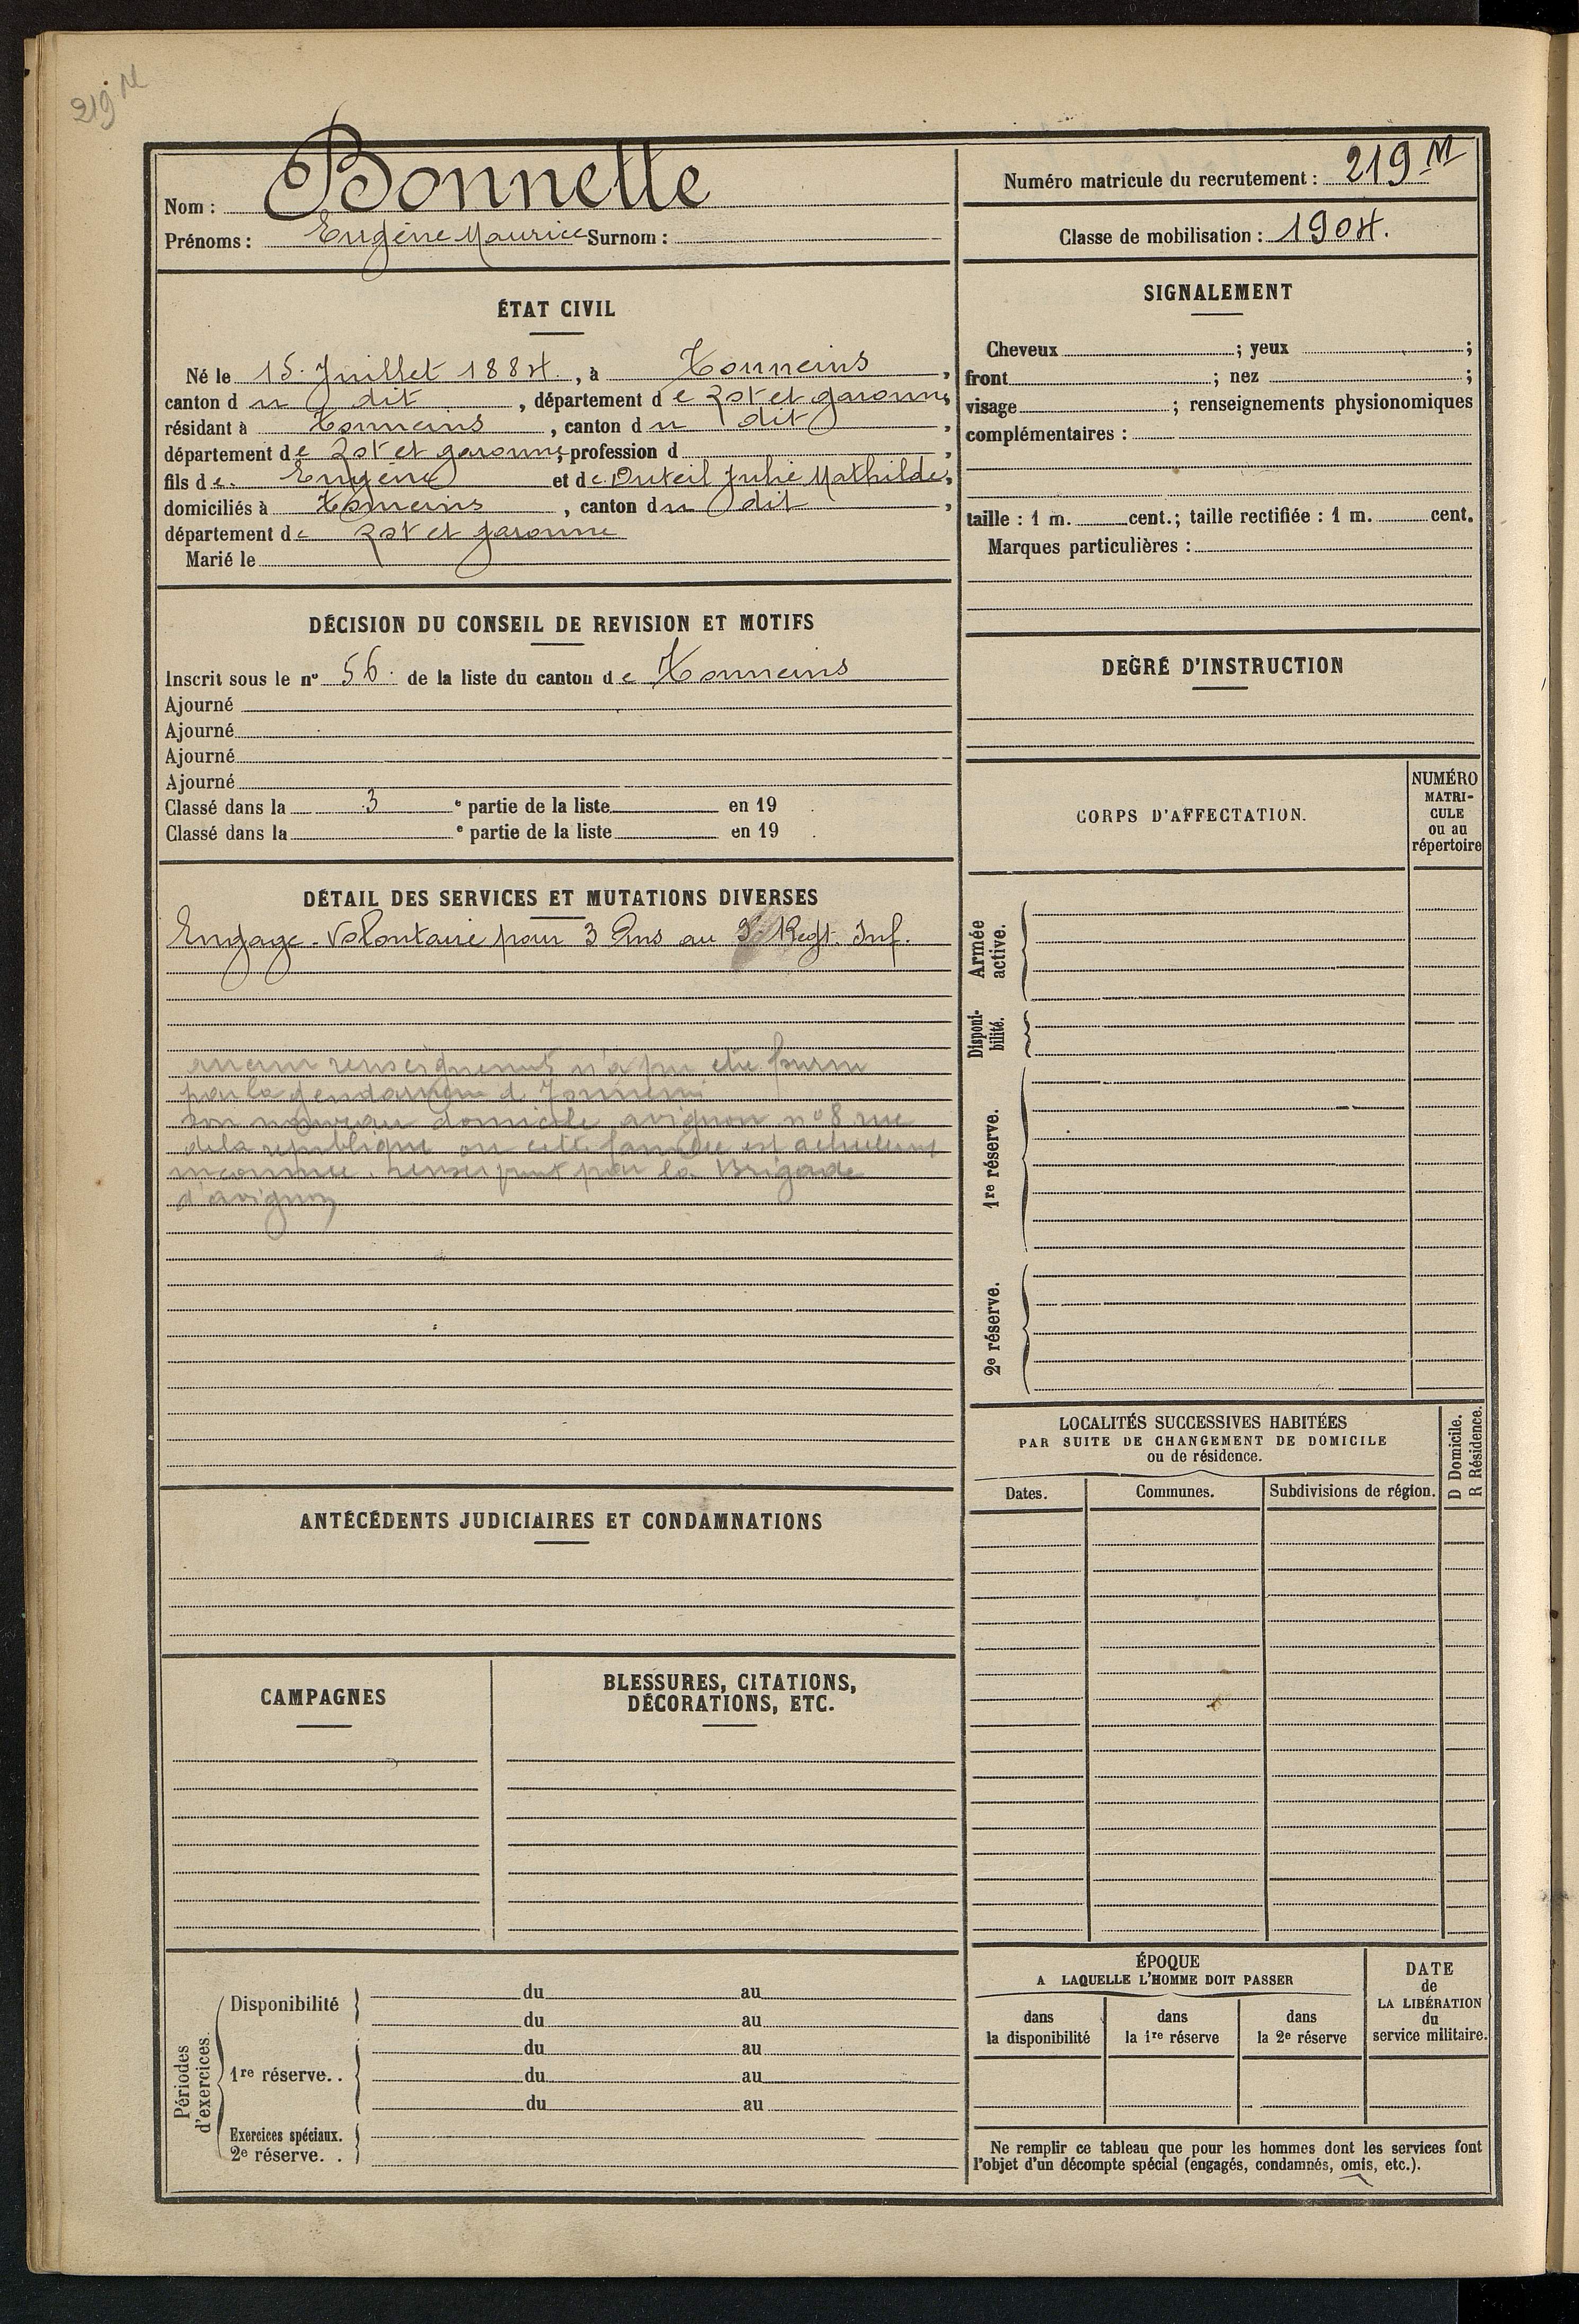 219 M
Nom : Bonnette
Prénoms : Eugène Maurice Surnom :
Numéro matricule du recrutement : 219 M
Classe de mobilisation : 1904.
ÉTAT CIVIL
Né le 15 Juillet 1884, à Tonneins,
canton du dit, département de Lot et garonne,
résidant à Tonneins, canton du dit,
département de Lot et garonne, profession d
fils de Eugène et de Duteil Julie Mathilde,
domiciliés à Tonneins, canton du dit,
département de Lot et garonne
Marié le
SIGNALEMENT
Cheveux ; yeux ;
front ; nez ;
visage ; renseignements physionomiques
complémentaires :
taille : 1 m. cent.; taille rectifiée : 1 m. cent.
Marques particulières :
DÉCISION DU CONSEIL DE REVISION ET MOTIFS
Inscrit sous le nº 56. de la liste du canton de Tonneins
Ajourné
Ajourné
Ajourné
Ajourné
Classé dans la 3 e partie de la liste en 19 .
Classé dans la e partie de la liste en 19 .
DEGRÉ D'INSTRUCTION
DÉTAIL DES SERVICES ET MUTATIONS DIVERSES
Engagé volontaire pour 3 Ans au Regt. Inf.
aucun renseignement n'a pu etre fourni
par la gendarmerie de Tonneins
son nouveau domicile avignon nº 8 rue
de la republique ou cette famille est actuellement
inconnue. renseignemt par la Brigade
d'avignon
CORPS D'AFFECTATION.
NUMÉRO
MATRI-
CULE
ou au
répertoire
Armée
active.
Disponi-
bilité.
1re réserve.
2e réserve.
LOCALITÉS SUCCESSIVES HABITÉES
PAR SUITE DE CHANGEMENT DE DOMICILE
ou de résidence.
Dates. Communes. Subdivisions de région.
D Domicile.
R Résidence.
ANTÉCÉDENTS JUDICIAIRES ET CONDAMNATIONS
CAMPAGNES
BLESSURES, CITATIONS,
DÉCORATIONS, ETC.
Périodes
d'exercices.
Disponibilité
du au
du au
1re réserve. .
du au
du au
du au
Exercices spéciaux.
2e réserve. .
ÉPOQUE
A LAQUELLE L'HOMME DOIT PASSER
dans
la disponibilité
dans
la 1re réserve
dans
la 2e réserve
DATE
de
LA LIBÉRATION
du
service militaire.
Ne remplir ce tableau que pour les hommes dont les services font
l'objet d'un décompte spécial (engagés, condamnés, omis, etc.).